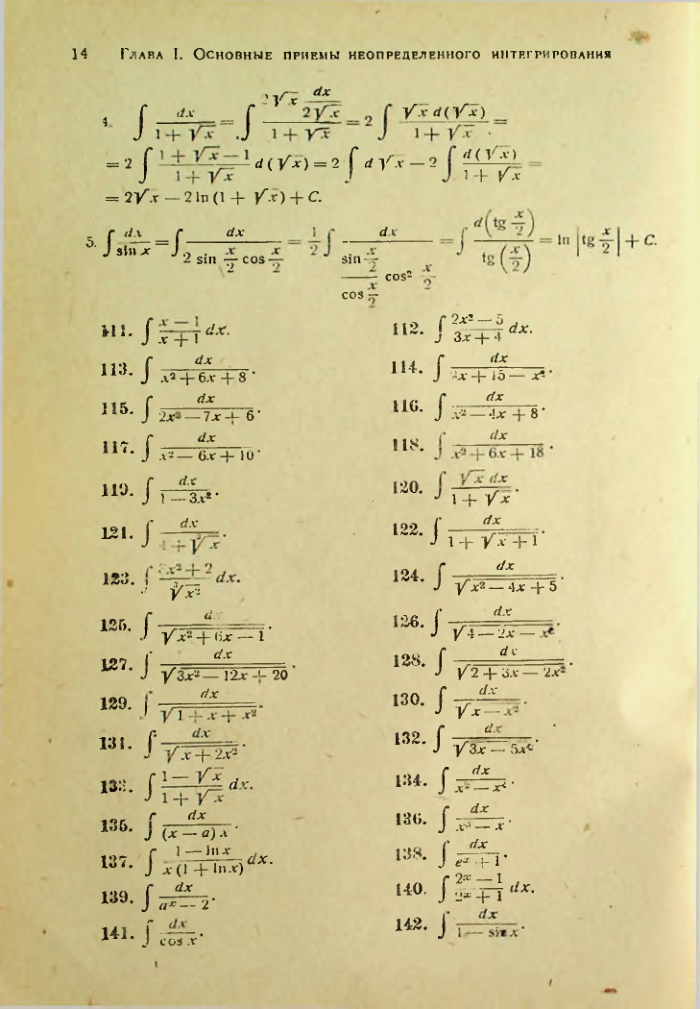 14 Глава I. Основные приемы неопределенного интегрирования
4. ∫ dx/(1 + √x) = ∫ (2√x dx/(2√x))/(1 + √x) = 2 ∫ √x d(√x)/(1 + √x) =
= 2 ∫ (1 + √x − 1)/(1 + √x) d(√x) = 2 ∫ d√x − 2 ∫ d(√x)/(1 + √x) =
= 2√x − 2 ln(1 + √x) + C.
5. ∫ dx/sin x = ∫ dx/(2 sin x/2 cos x/2) = 1/2 ∫ dx/((sin x/2)/(cos x/2) cos² x/2) = ∫ d(tg x/2)/tg(x/2) = ln |tg x/2| + C.
111. ∫ (x − 1)/(x + 1) dx. 112. ∫ (2x² − 5)/(3x + 4) dx.
113. ∫ dx/(x² + 6x + 8). 114. ∫ dx/(2x + 15 − x²).
115. ∫ dx/(2x² − 7x + 6). 116. ∫ dx/(x² − 4x + 8).
117. ∫ dx/(x² − 6x + 10). 118. ∫ dx/(x² + 6x + 18).
119. ∫ dx/(1 − 3x²). 120. ∫ √x dx/(1 + √x).
121. ∫ dx/(1 + ∛x). 122. ∫ dx/(1 + √x + 1).
123. ∫ (x² + 2)/∛x² dx. 124. ∫ dx/√(x² − 4x + 5).
125. ∫ dx/√(x² + 6x − 1). 126. ∫ dx/√(4 − 2x − x²).
127. ∫ dx/√(3x² − 12x + 20). 128. ∫ dx/√(2 + 3x − 2x²).
129. ∫ dx/√(1 + x + x²). 130. ∫ dx/√(x − x²).
131. ∫ dx/√(x + 2x²). 132. ∫ dx/√(3x − 5x²).
133. ∫ (1 − √x)/(1 + √x) dx. 134. ∫ dx/(x² − x⁴).
135. ∫ dx/((x − a) x). 136. ∫ dx/(x³ − x).
137. ∫ (1 − ln x)/(x (1 + ln x)) dx. 138. ∫ dx/(eˣ + 1).
139. ∫ dx/(aˣ − 2). 140. ∫ (2ˣ − 1)/(2ˣ + 1) dx.
141. ∫ dx/cos x. 142. ∫ dx/(1 − sin x).